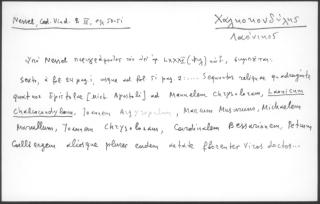 Nessel, Cod. Vind. 8 III, pg 50-51
Χαλκοκονδύλης
Λαόνικος
Nessel
Sexto, à
usque ad fol. Sequuntur reliquae quadraginta
quatuor Epistolae [Mich. Apostoli] ad Manuelem Chrysoloram, Laonicum
Chalcocondylam, Joannem Argyropulum, Marcum Musurum, Michaelem
Marullum, Joannem Chrysoloram, Cardinalem Bessarionem, Petrum
Calliergem aliosque plures eadem aetate florentes Viros doctos...